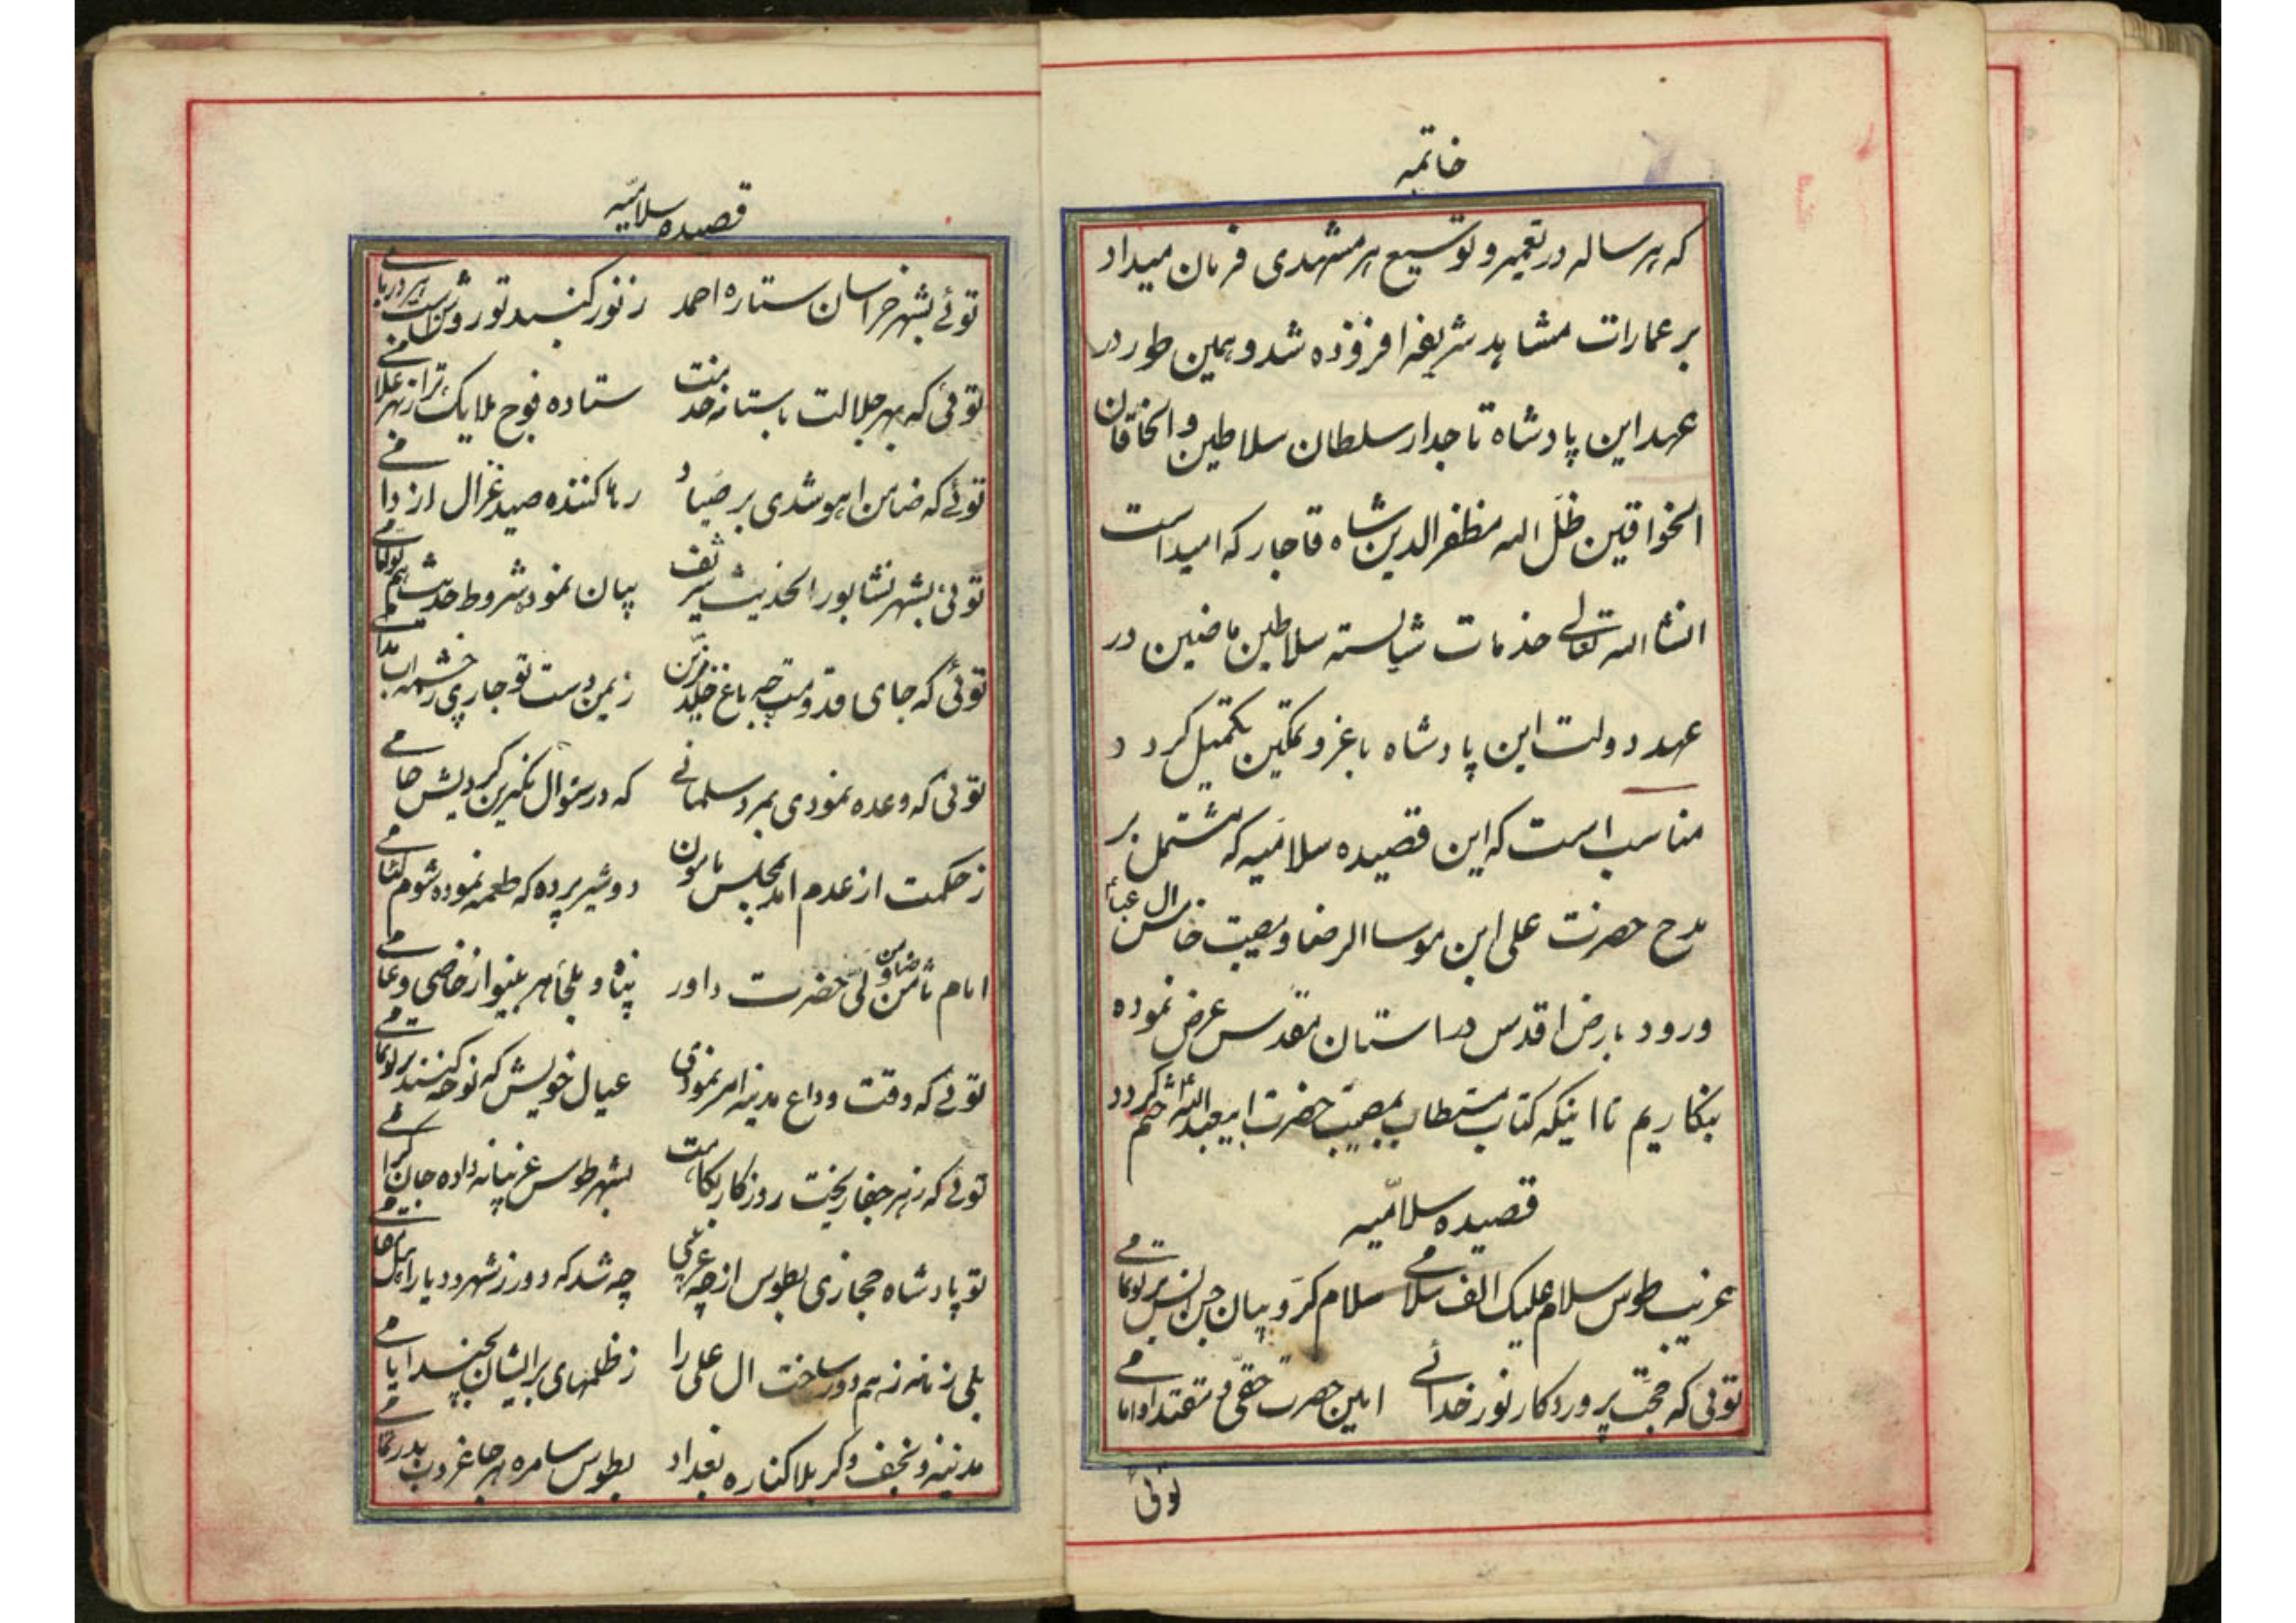 خاتمه
که هر ساله در تعمیر و توسیع هر مشهدی فرمان میداد
بر عمارات مشاهد شریفه افزوده شد و همین طور در
عهد این پادشاه تاجدار سلطان سلاطین و الخاقان
الخواقین ظل الله مظفرالدین شاه قاجار که امید است
انشاالله تعالی خدمات شایسته سلاطین ماضین در
عهد دولت این پادشاه با عز و تمکین تکمیل کردد
مناسب است که این قصیده سلامیه که مشتمل بر
مدح حضرت علی ابن موسا الرضا و مصیبت خامس ال عبا
ورود بارض اقدس در استان مقدس عرض نموده
بنکاریم تا اینکه کتاب مستطاب بمصیبت حضرت ابیعبدالله ختم کردد
قصیده سلامیه
غریب طوس سلام علیک الف سلامی سلام کروبیان جن انس بر تو تمامی
توئی که حجت پروردکار نور خدائی امین حضرت حقی مقتدا و امامی
توئی
قصیده سلامیه
توئے بشهر خراسان ستاره احمد ز نور کنبد تو روشن است هر در بامی
توئی که بهر جلالت باستانه خدمت ستاده فوج ملایک ترا ز بهر غلامی
توئے که ضامن اهو شدی بر صیاد رها کننده صید غزال از دامی
توئی بشهر نشابور الحدیث شریف بیان نموده شروط حدیث هم تو امامی
توئی که جای قدومت چه باغ خلد مزین ز یمن دست تو جاری چشمه اب
توئی که وعده نمودی بمرد سلمانے که در سئوال نکیرین کردیش حامی
ز حکمت از عدم امد بمجلس مامون دو شیر پرده که طعمه نموده شوم
امام ثامن ضامن ولی حضرت داور پناه و ملجأ هر بینوا ز خاصی و عامی
توئے که وقت وداع مدینه امر نمودی عیال خویش که نوحه کنند بر تو تمامی
توئے که زهر جفا ریخت روزکار بکامت بشهر طوس غریبانه داده جان کرامی
تو پادشاه حجازی بطوس از چه غریبی چه شد که دور ز شهر و دیار
بلی زمانه ز هم دور ساخت ال علی را ز ظلمهای بر ایشان بچند ایامی
مدینه و نجف و کربلا کناره بغداد بطوس سامره هر جا غروب بدر تمامی